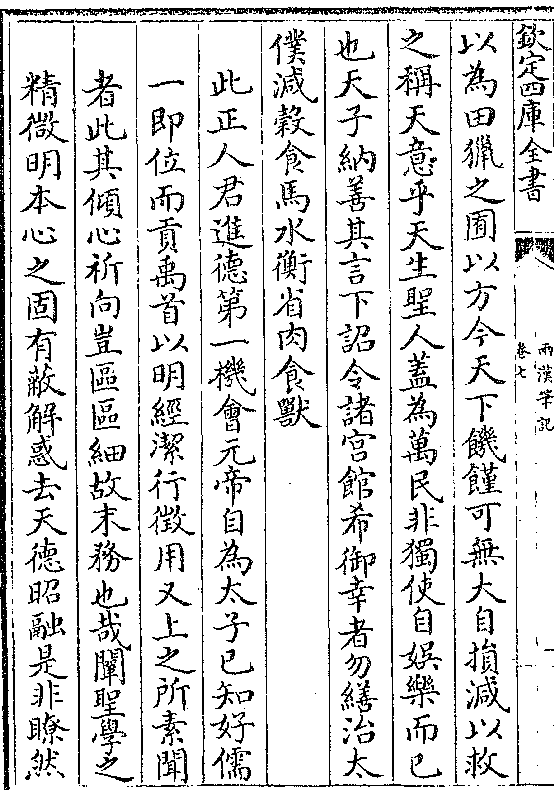 欽定四庫全書
兩漢筆記
卷七
以為田獵之囿以方今天下饑饉可無大自損減以救
之稱天意乎天生聖人蓋為萬民非獨使自娛樂而已
也天子納善其言下詔令諸宮館希御幸者勿繕治太
僕減穀食馬水衡省肉食獸
此正人君進德第一機會元帝自為太子已知好儒
一即位而貢禹首以明經潔行徵用又上之所素聞
者此其傾心祈向豈區區細故末務也哉闡聖學之
精微明本心之固有蔽解惑去天德昭融是非瞭然